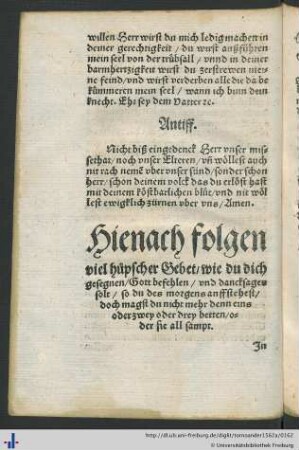 willen Herr wirst du mich ledig machen in
deiner gerechtigkeit / du wirst außführen
mein seel von der trübsall / vnnd in deiner
barmhertzigkeit wirst du zerstrewen mey-
ne feind / vnd wirst verderben alle die da be
kümmeren mein seel / wann ich binn dein
knecht. Ehr sey dem Vatter ꝛc.
Antiff.
Nicht biß eingedenck Herr vnser misse
thar / noch vnser Elteren / vñ wöllest auch
nit rach nemẽ vber vnser sünd / sonder schon
herr / schon deinem volck das du erlößt hast
mit deinem köstbarlichen blůt / vnd nit wöl
lest ewigklich zürnen vber vns / Amen.
Hienach folgen
viel hüpscher Gebet / wie du dich
gesegnen / Gott befehlen / vnd dancksagen
solt / so du des morgens auffstehest /
doch magst du nicht mehr denn eins
oder zwey oder drey betten / o-
der sie all sampt.
In
http://dl.ub.uni-freiburg.de/diglit/somzander1562a/0162
© Universitätsbibliothek Freiburg